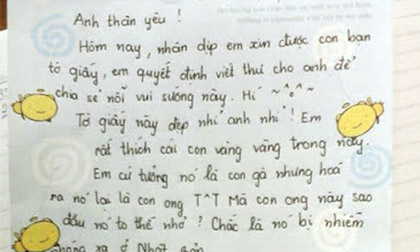 Anh thân yêu !
Hôm nay, nhân dịp em xin được con bạn
tờ giấy, em quyết định viết thư cho anh để
chia sẻ nỗi vui sướng này. Hí ~^o^~
Tờ giấy này đẹp nhỉ anh nhỉ ! Em
rất thích cái con vàng vàng trong này.
Em cứ tưởng nó là con gà nhưng hoá
ra nó lại là con ong T^T Mà con ong này sao
đầu nó to thế nhờ ? Chắc là nó bị nhiễm
phóng xạ ở Nhật Bản.